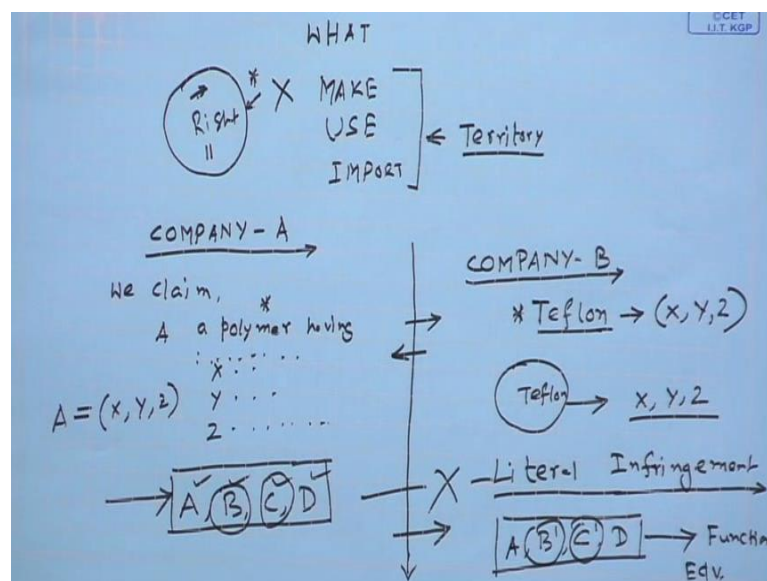 ©CET
I.I.T. KGP
WHAT
Right
* X MAKE
USE
IMPORT
← Territory
COMPANY - A
We claim,
*
A a polymer having
X . .
Y . . .
Z . . . . . . .
A = (X, Y, Z)
A, B, C, D
COMPANY - B
* Teflon → (X, Y, Z)
Teflon → X, Y, Z
X - Literal Infringement
A, B' C' D → Functio
Eqv.